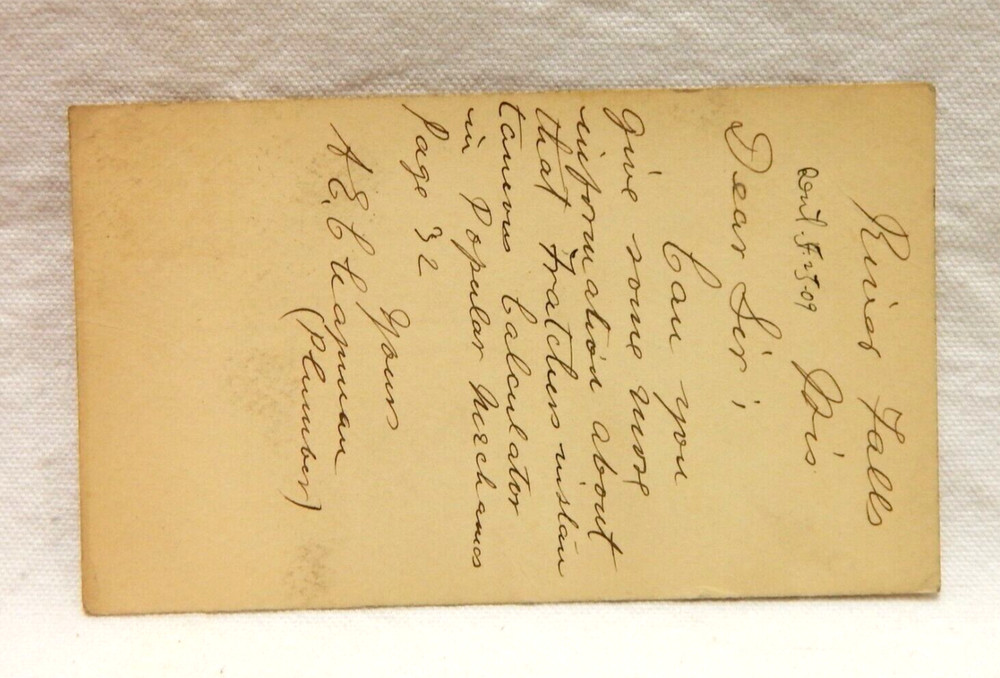 River Falls
Wis
Dear Sir;
Can you
give some more
information about
that Fratchers instan
taneous Calculator
in Popular Mechanics
Page 32
Yours
A.E. Chapman
(Plumber)